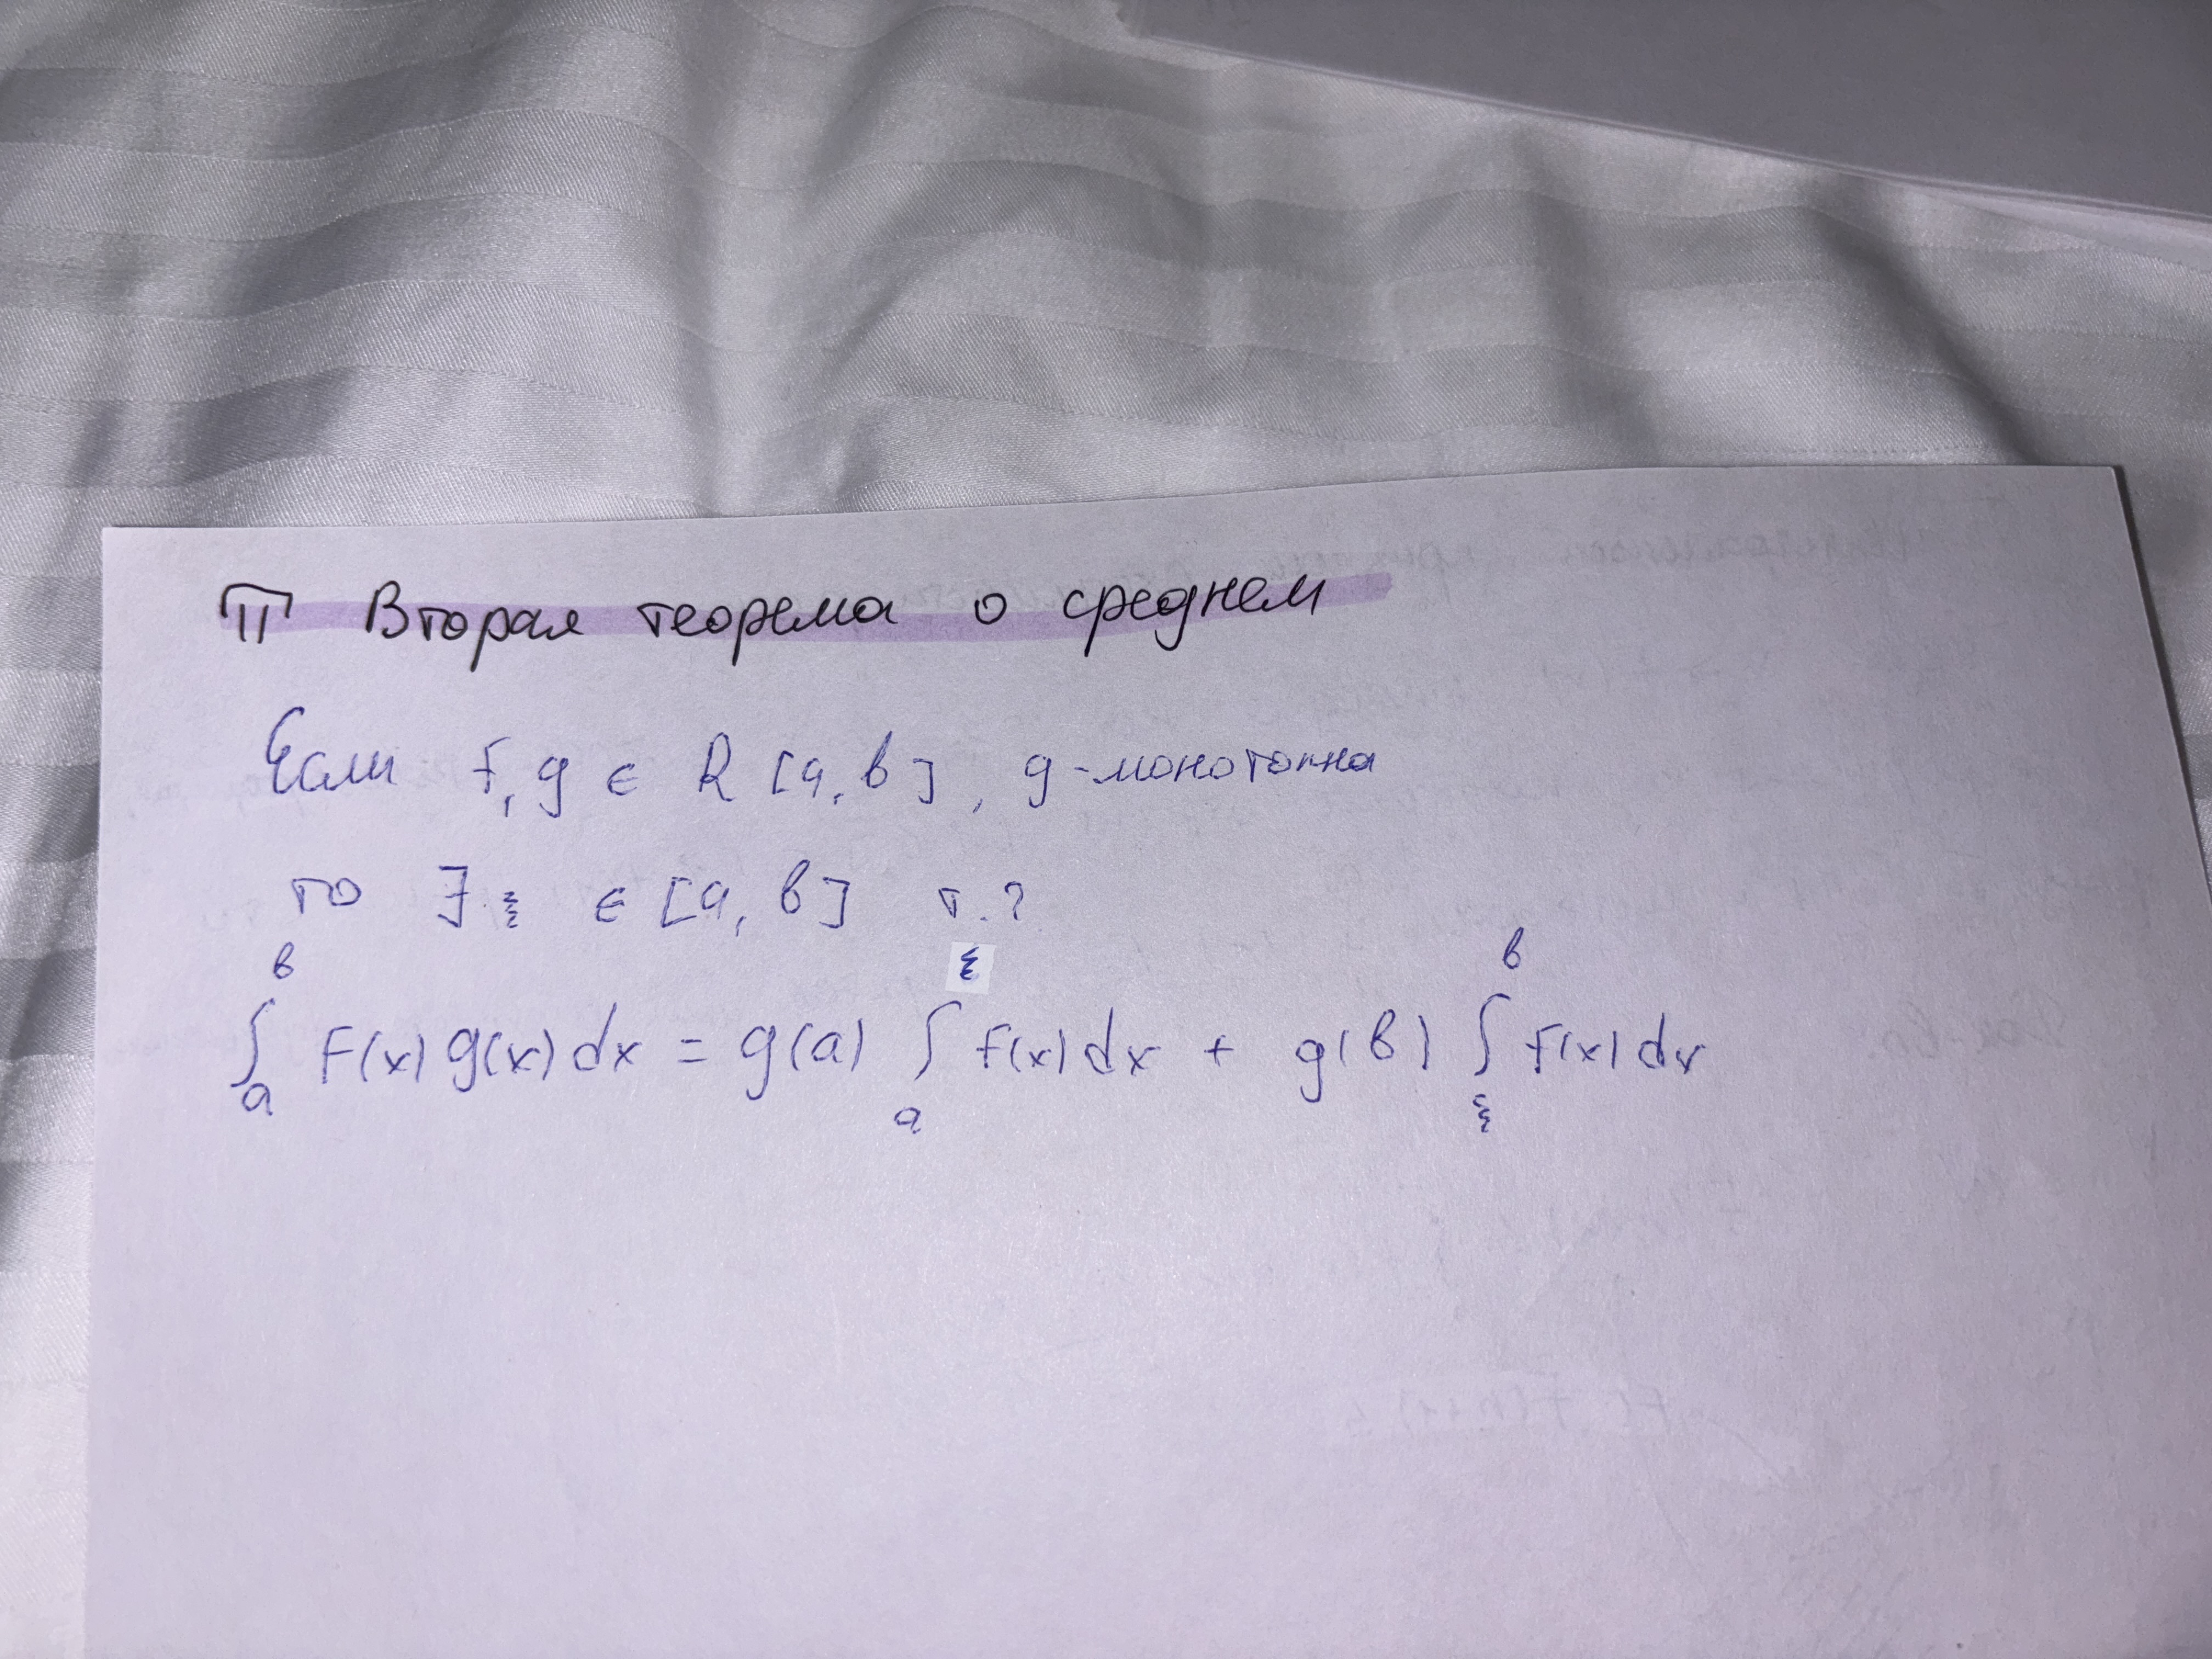 П Вторая теорема о среднем
Если f, g ∈ R [a, b], g - монотонна
то ∃ ξ ∈ [a, b] т. ?
∫ₐᵇ F(x) g(x) dx = g(a) ∫ₐ^ξ f(x) dx + g(b) ∫_ξ^b f(x) dx